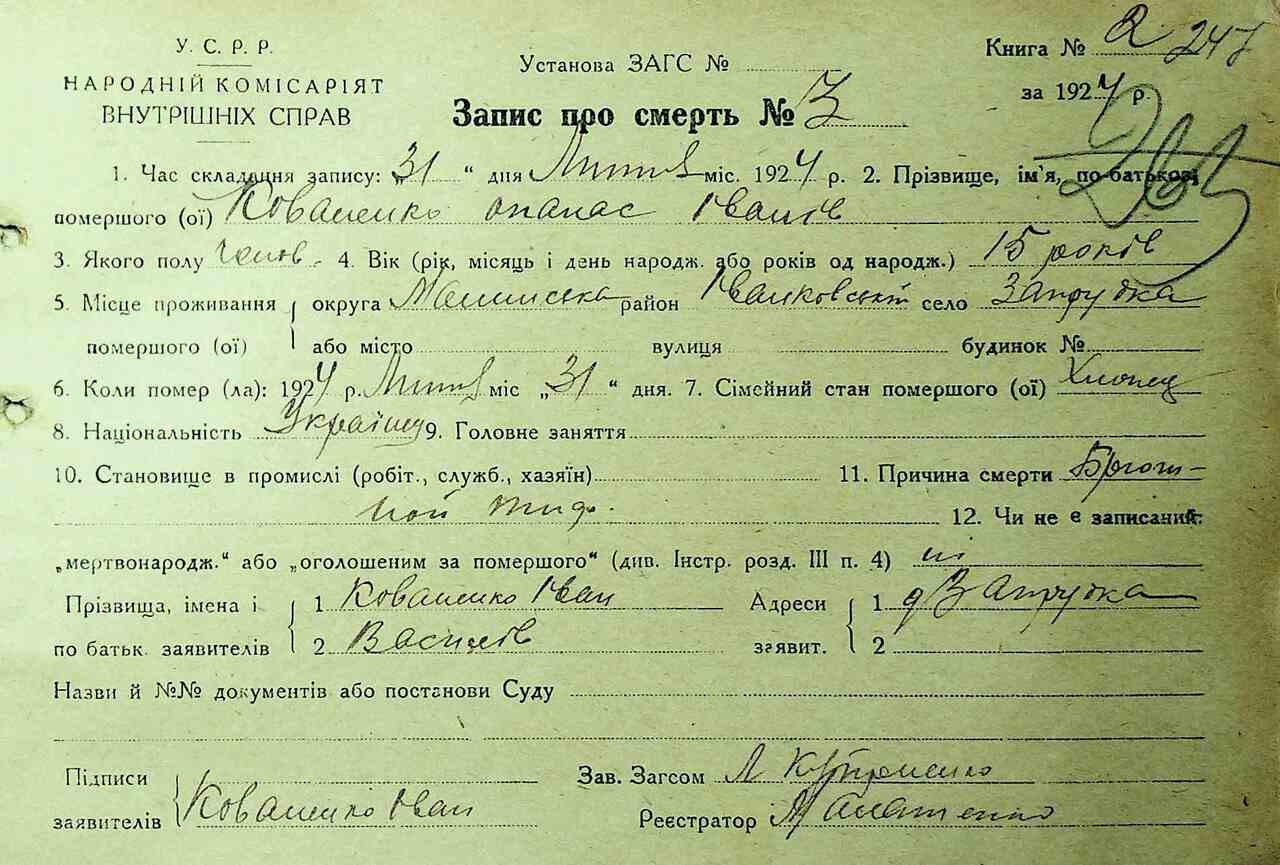 У. С. Р. Р.
НАРОДНІЙ КОМІСАРІЯТ
ВНУТРІШНІХ СПРАВ
Установа ЗАГС №
Книга № 2 247
за 1924 р.
Запис про смерть № 3
1. Час складання запису: „31“ дня Липня міс. 1924 р. 2. Прізвище, ім'я, по-батькові
помершого (ої) Коваленко Опанас Іванів
3. Якого полу чолов. 4. Вік (рік, місяць і день народж. або років од народж.) 15 років
5. Місце проживання округа Малинська район Іванковський село Запрудка
помершого (ої) або місто вулиця будинок №
6. Коли помер (ла): 1924 р. Липня міс „31“ дня. 7. Сімейний стан помершого (ої) Хлопец
8. Національність Українец 9. Головне заняття
10. Становище в промислі (робіт., служб., хазяїн) 11. Причина смерти Брюш-
ной тиф. 12. Чи не є записаний:
„мертвонародж.“ або „оголошеним за помершого“ (див. Інстр. розд. III п. 4) ні
Прізвища, імена і 1 Коваленко Іван Адреси 1 д Запрудка
по батьк. заявителів 2 Василів заявит. 2
Назви й №№ документів або постанови Суду
Підписи Зав. Загсом
заявителів Коваленко Іван Реєстратор